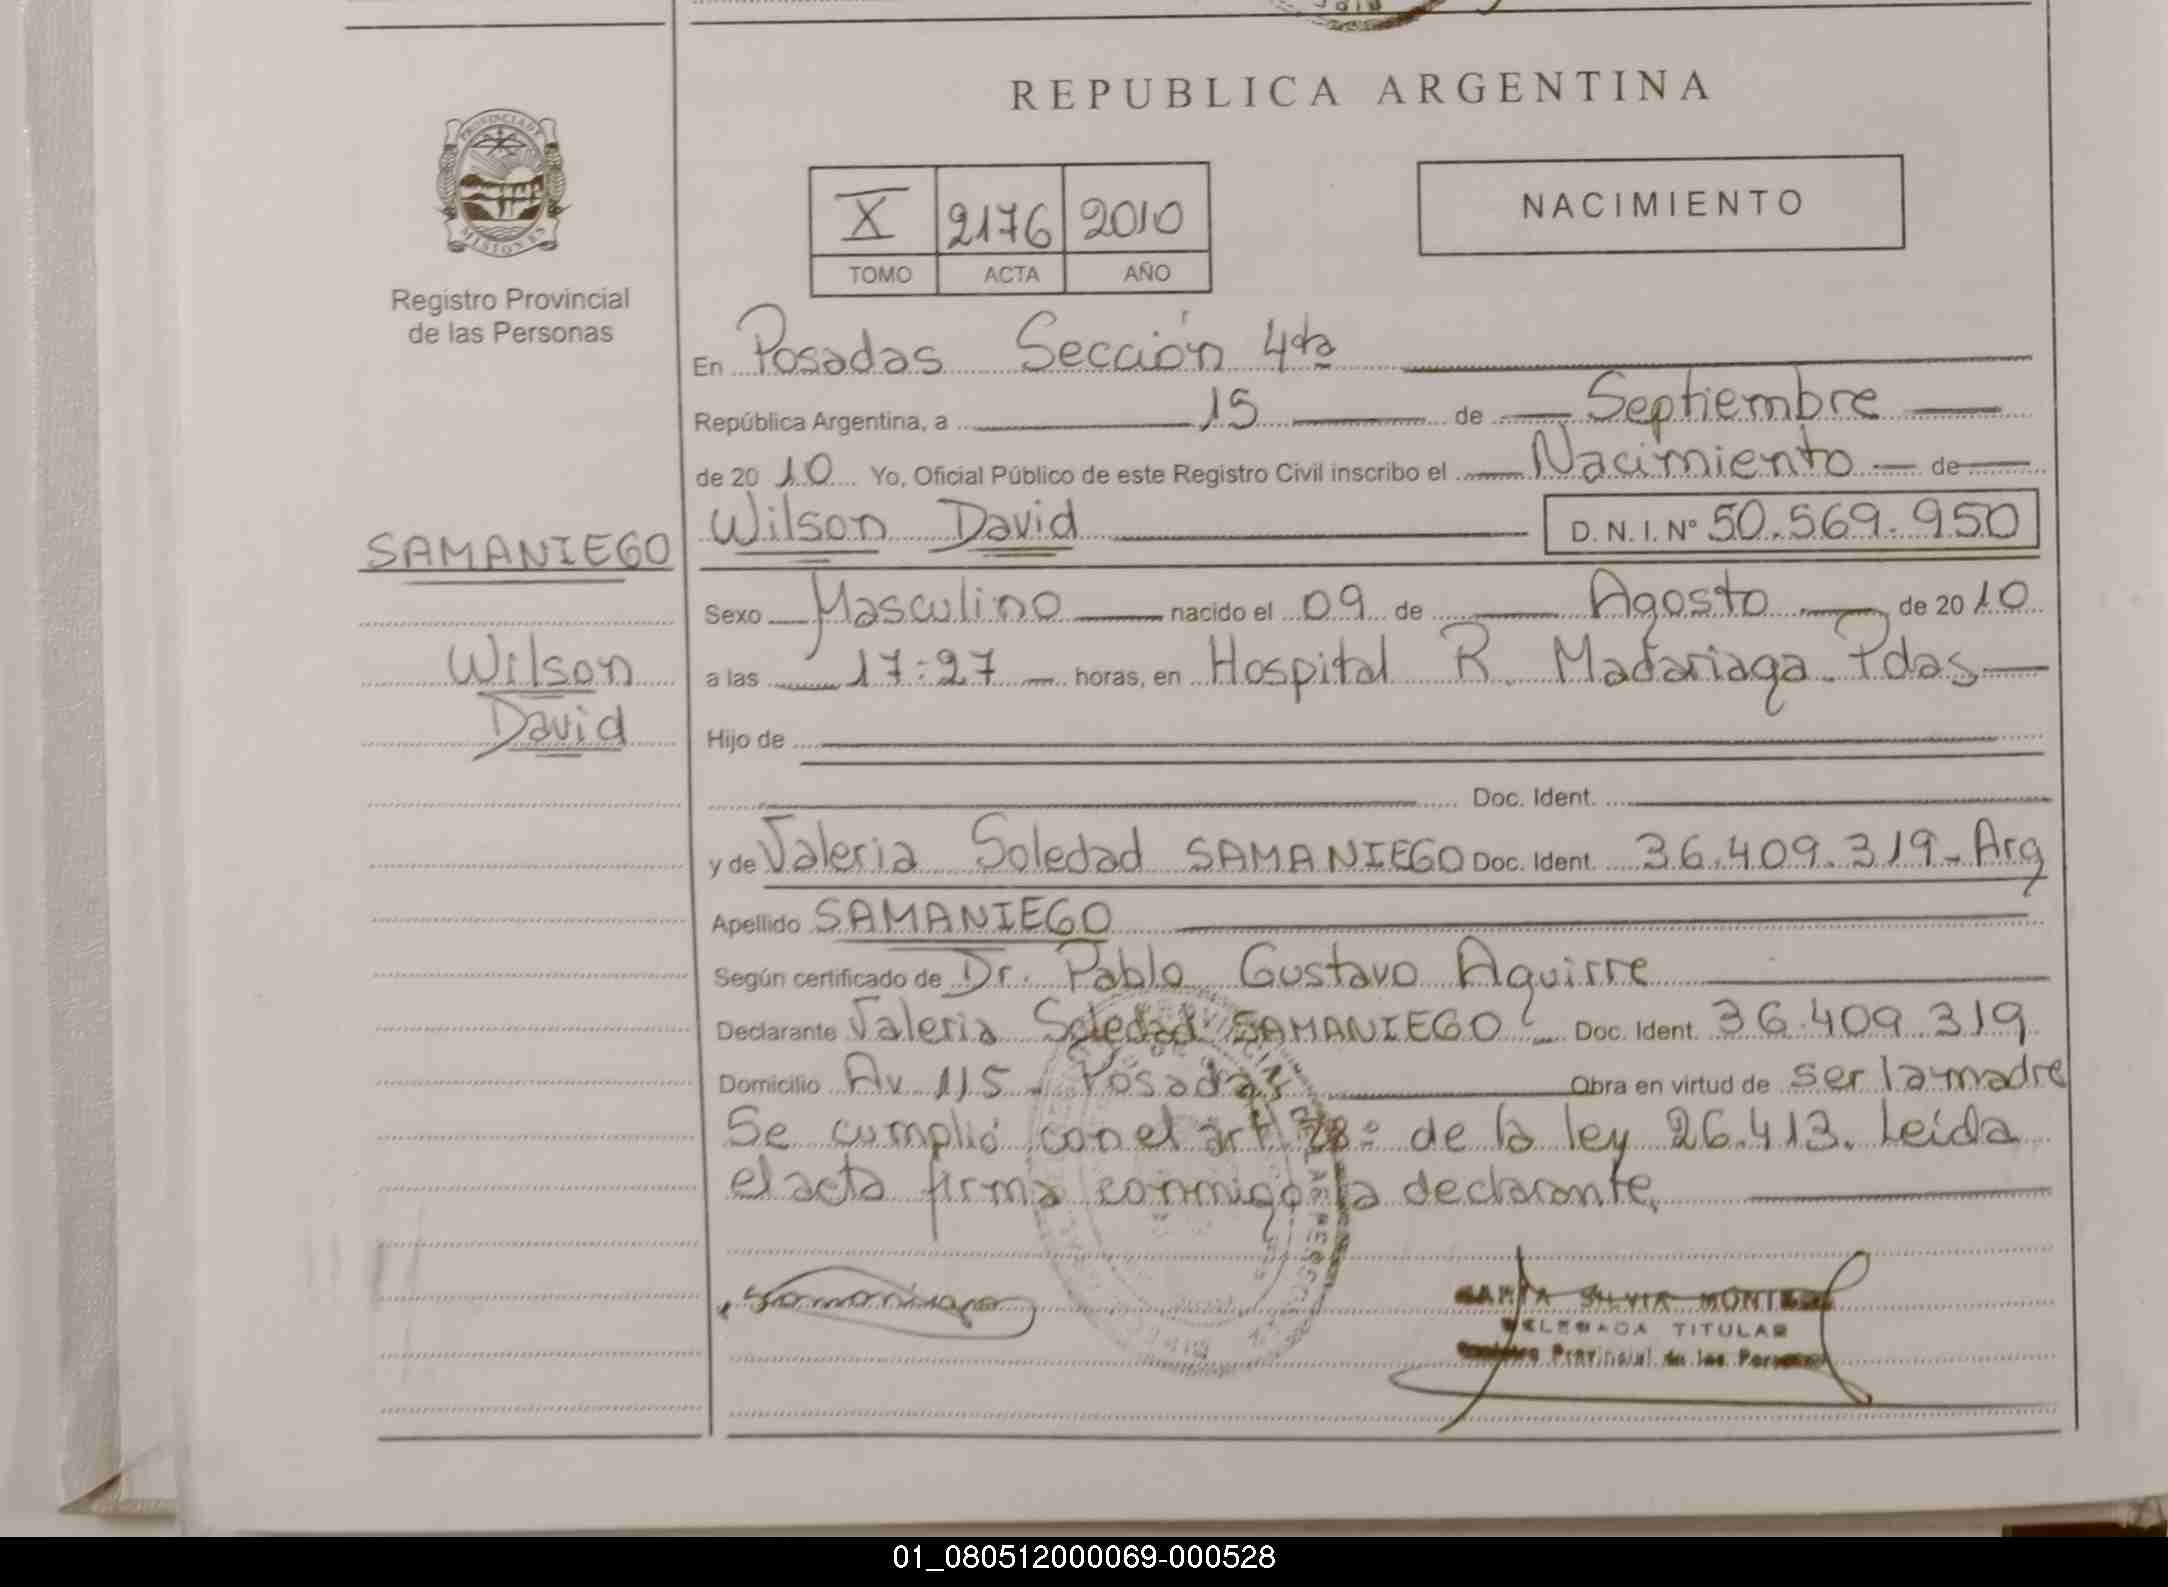 REPUBLICA ARGENTINA
PROVINCIA DE
MISIONES
Registro Provincial
de las Personas
X 2176 2010
TOMO ACTA AÑO
NACIMIENTO
En Posadas Sección 4ta
República Argentina, a 15 de Septiembre
de 2010 Yo, Oficial Público de este Registro Civil inscribo el Nacimiento de
SAMANIEGO
Wilson David D.N.I.Nº 50.569.950
Sexo Masculino nacido el 09 de Agosto de 2010
Wilson
a las 17:27 horas, en Hospital R. Madariaga. Pdas
David
Hijo de
Doc. Ident.
y de Valeria Soledad SAMANIEGO Doc. Ident. 36.409.319-Arg
Apellido SAMANIEGO
Según certificado de Dr. Pablo Gustavo Aguirre
Declarante Valeria Soledad SAMANIEGO Doc. Ident. 36.409.319
Domicilio Av 115 - Posadas Obra en virtud de ser la madre
Se cumplió con el art 28º de la ley 26.413. Leída
el acta firma conmigo la declarante.
Samaniego
SILVIA
DELEGADA TITULAR
Provincial de las Personas
01_080512000069-000528